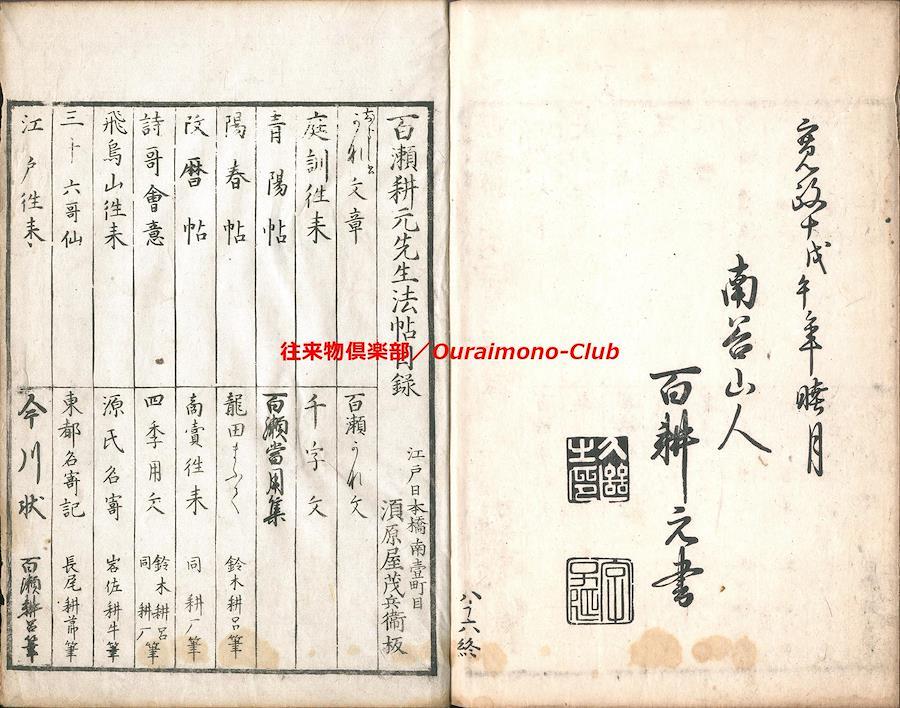 寛政十戊午年睦月
南谷山人
百耕元書
八ノ六終
百瀬耕元先生法帖目録
江戸日本橋南壹町目
須原屋茂兵衞板
文章
百瀬うれ文
庭訓徃来
千字文
青陽帖
百瀬當用集
陽春帖
龍田まふく 鈴木耕呂筆
改暦帖
商賣徃来 同耕厂筆
詩哥會意
四季用文 鈴木耕呂 同耕厂 筆
飛鳥山徃来
源氏名寄 岩佐耕牛筆
三十六哥仙
東都名寄記 長尾耕常筆
江戸徃来
今川状 百瀬耕呂筆
往来物倶楽部／Ouraimono-Club